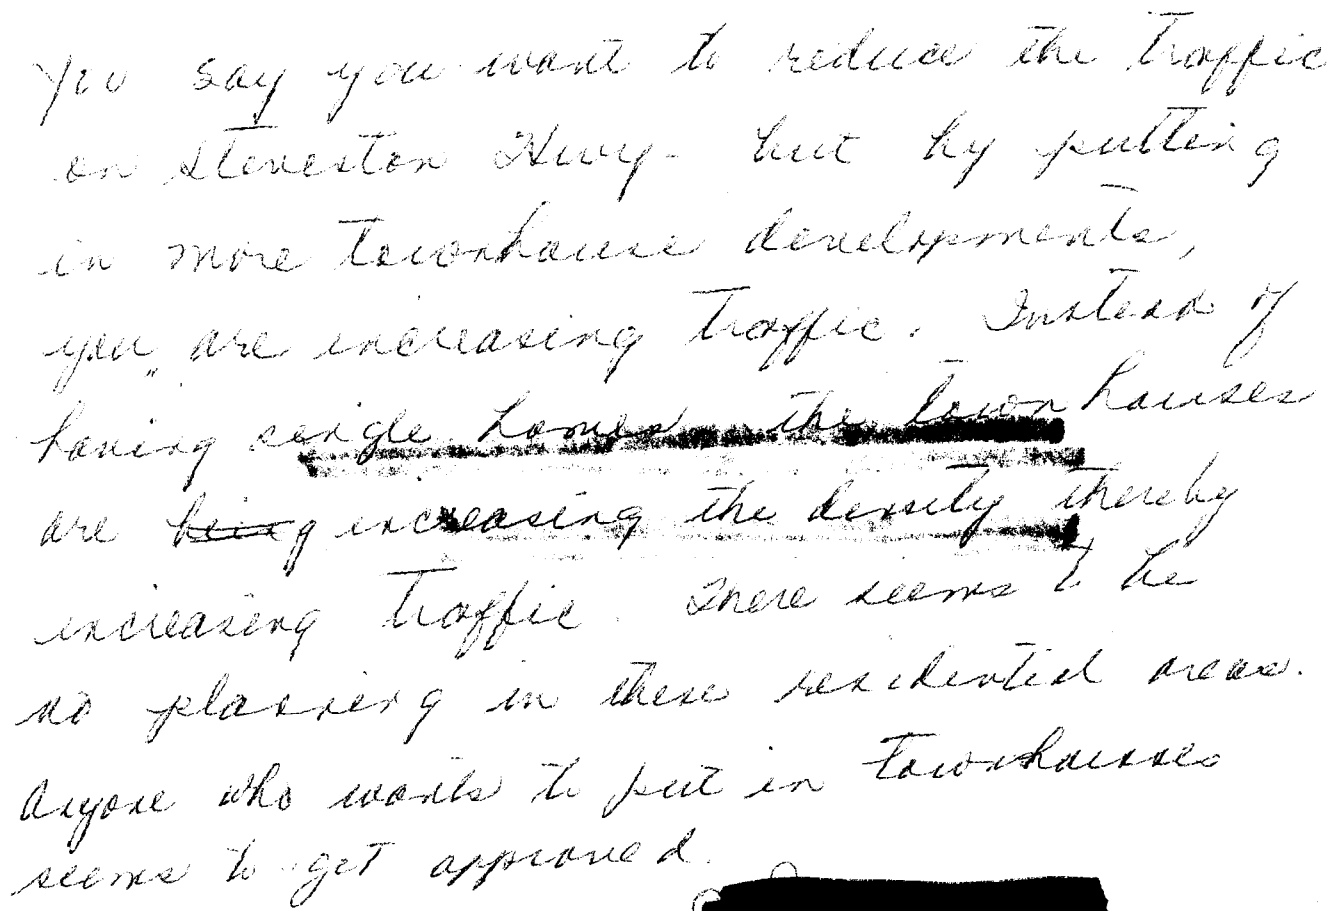 You say you want to reduce the traffic
on Steveston Hwy - but by putting
in more townhouse developments,
you are increasing traffic. Instead of
having single homes the townhouses
are being increasing the density thereby
increasing traffic. There seems to be
no planning in these residential areas.
Anyone who wants to put in townhouses
seems to get approved.